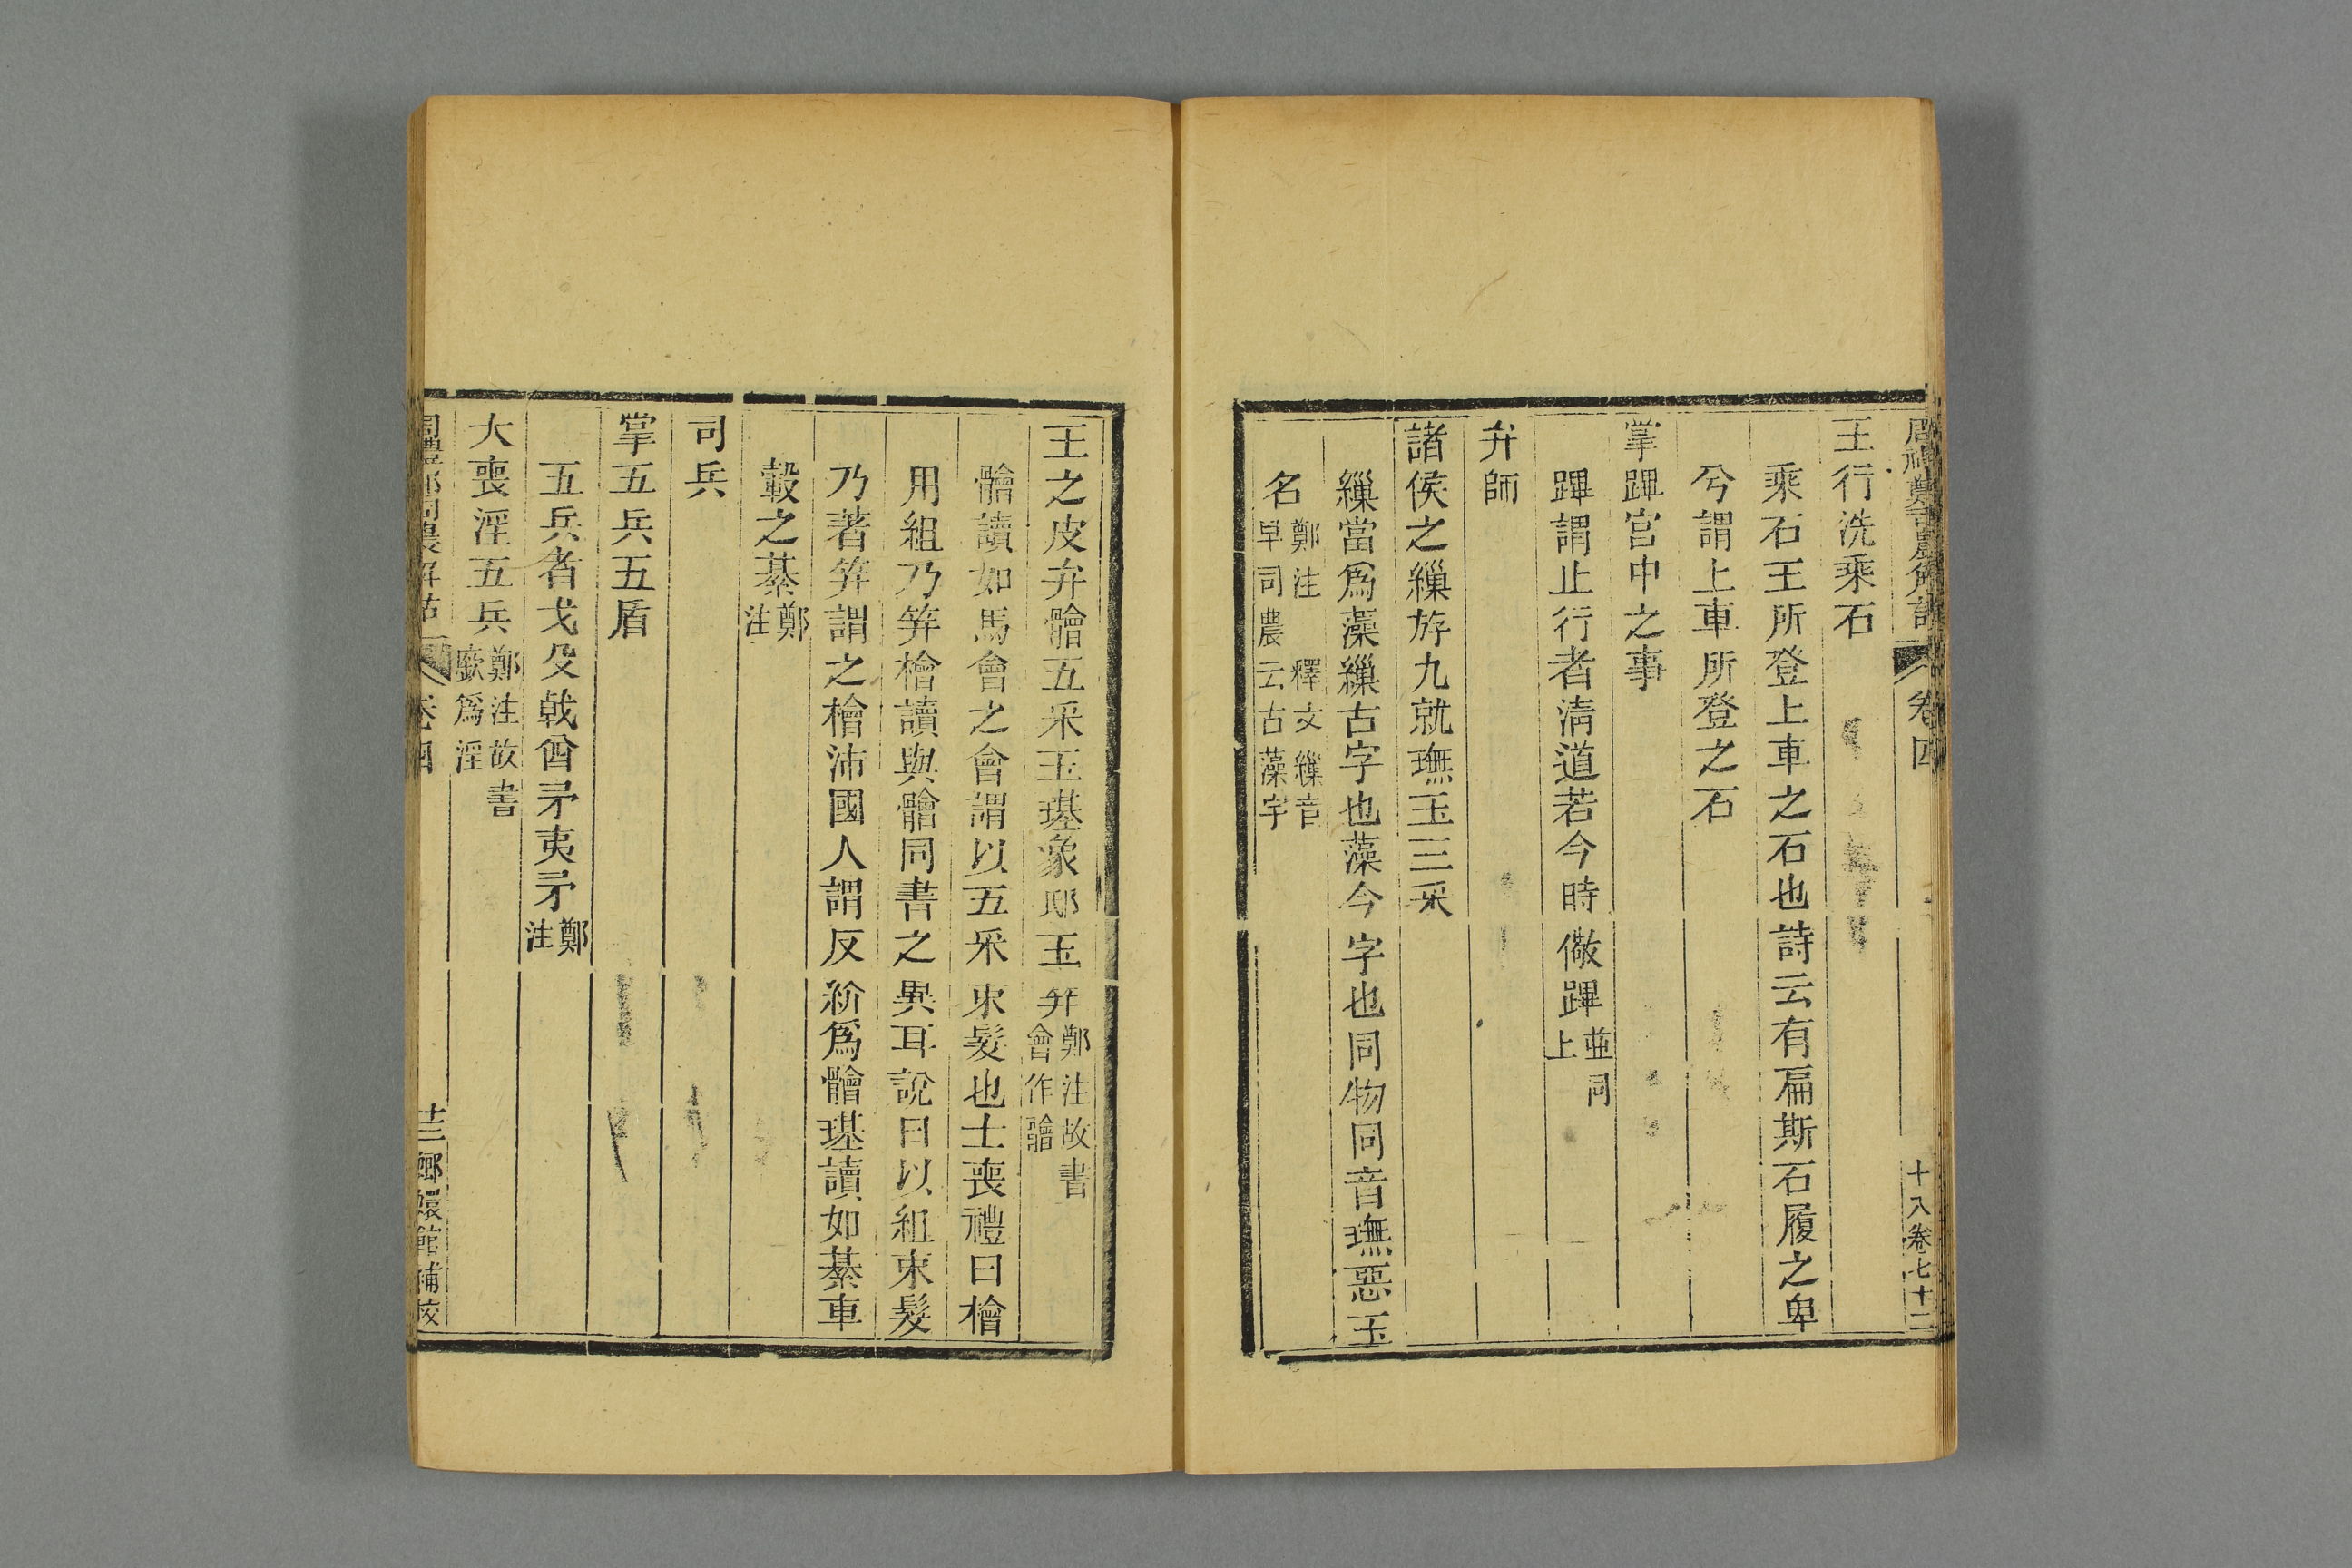 周禮鄭司農解詁 卷四 十八卷七十二
王行洗乘石
乘石王所登上車之石也詩云有扁斯石履之卑
兮謂上車所登之石
掌蹕宮中之事
蹕謂止行者清道若今時儆蹕並同上
弁師
諸侯之繅斿九就璑玉三采
繅當爲藻繅古字也藻今字也同物同音璑惡玉
名鄭注 釋文繅音早司農云古藻字
王之皮弁䯤五采玉璂象邸玉笄鄭注故書會作䯤
䯤讀如馬會之會謂以五采束髮也士喪禮曰檜
用組乃笄檜讀與䯤同書之異耳說曰以組束髮
乃著笄謂之檜沛國人謂反紒爲䯤璂讀如綦車
轂之綦鄭注
司兵
掌五兵五盾
五兵者戈殳戟酋矛夷矛鄭注
大喪淫五兵鄭注故書廞爲淫
周禮鄭司農解詁 卷四 十三 嫏嬛館補校